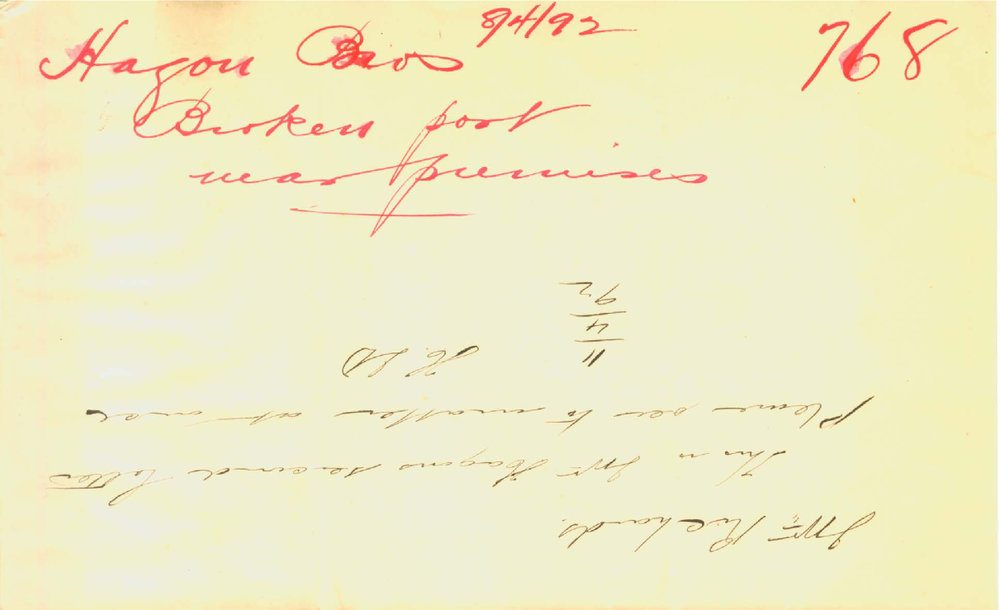 Hagon Bros 8/4/92
768
Broken post
near premises
Mr. Richards.
This is Mr Hagons second letter
Please see to matter at once
11/4/92